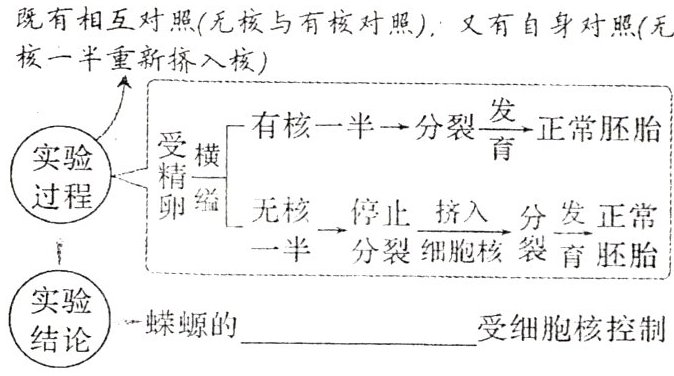 既有相互对照(无核与有核对照), 又有自身对照(无
核一半重新挤入核)
实验
过程
受精卵
横缢
有核一半→分裂
发育
→正常胚胎
无核
一半
→停止
分裂
挤入
细胞核
→分裂
发育
→正常
胚胎
实验
结论
蝾螈的____________受细胞核控制